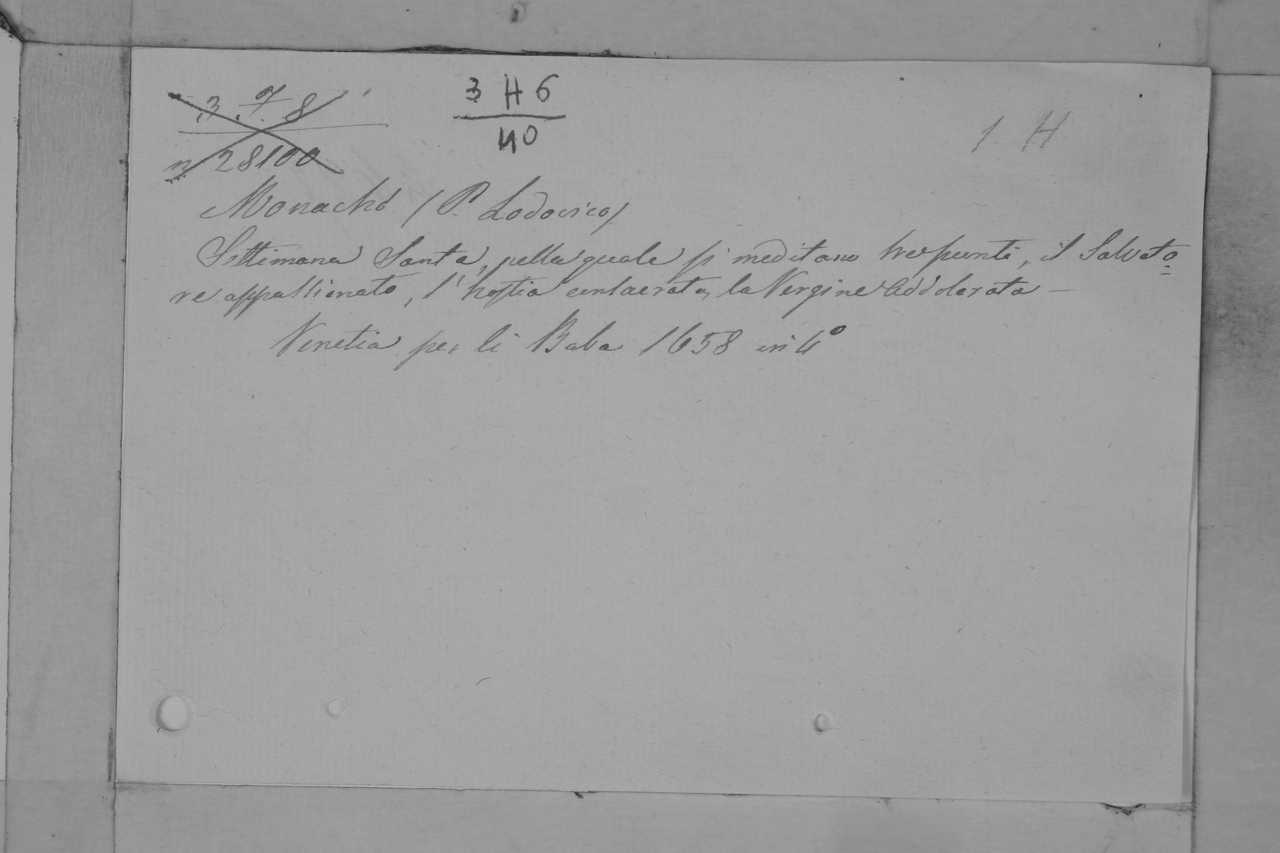 3. 7. 8
n 28100
3 H 6
40
1 H
Monacho (P. Lodovico)
Settimana Santa, nella quale si meditano tre punti, il Salvato=
re appassionato, l'hostia consacrata, la Vergine Addolorata —
Venetia per li Baba 1658 in 4º